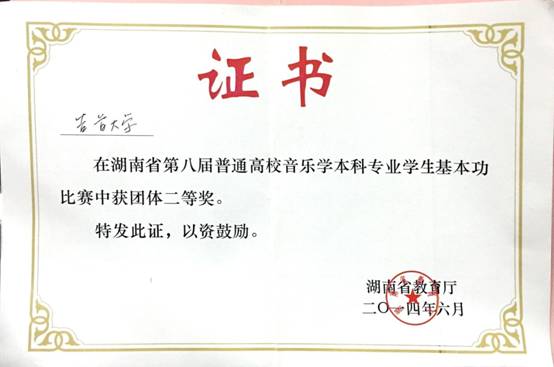 证书
吉首大学
在湖南省第八届普通高校音乐学本科专业学生基本功
比赛中获团体二等奖。
特发此证，以资鼓励。
湖南省教育厅
二〇一四年六月